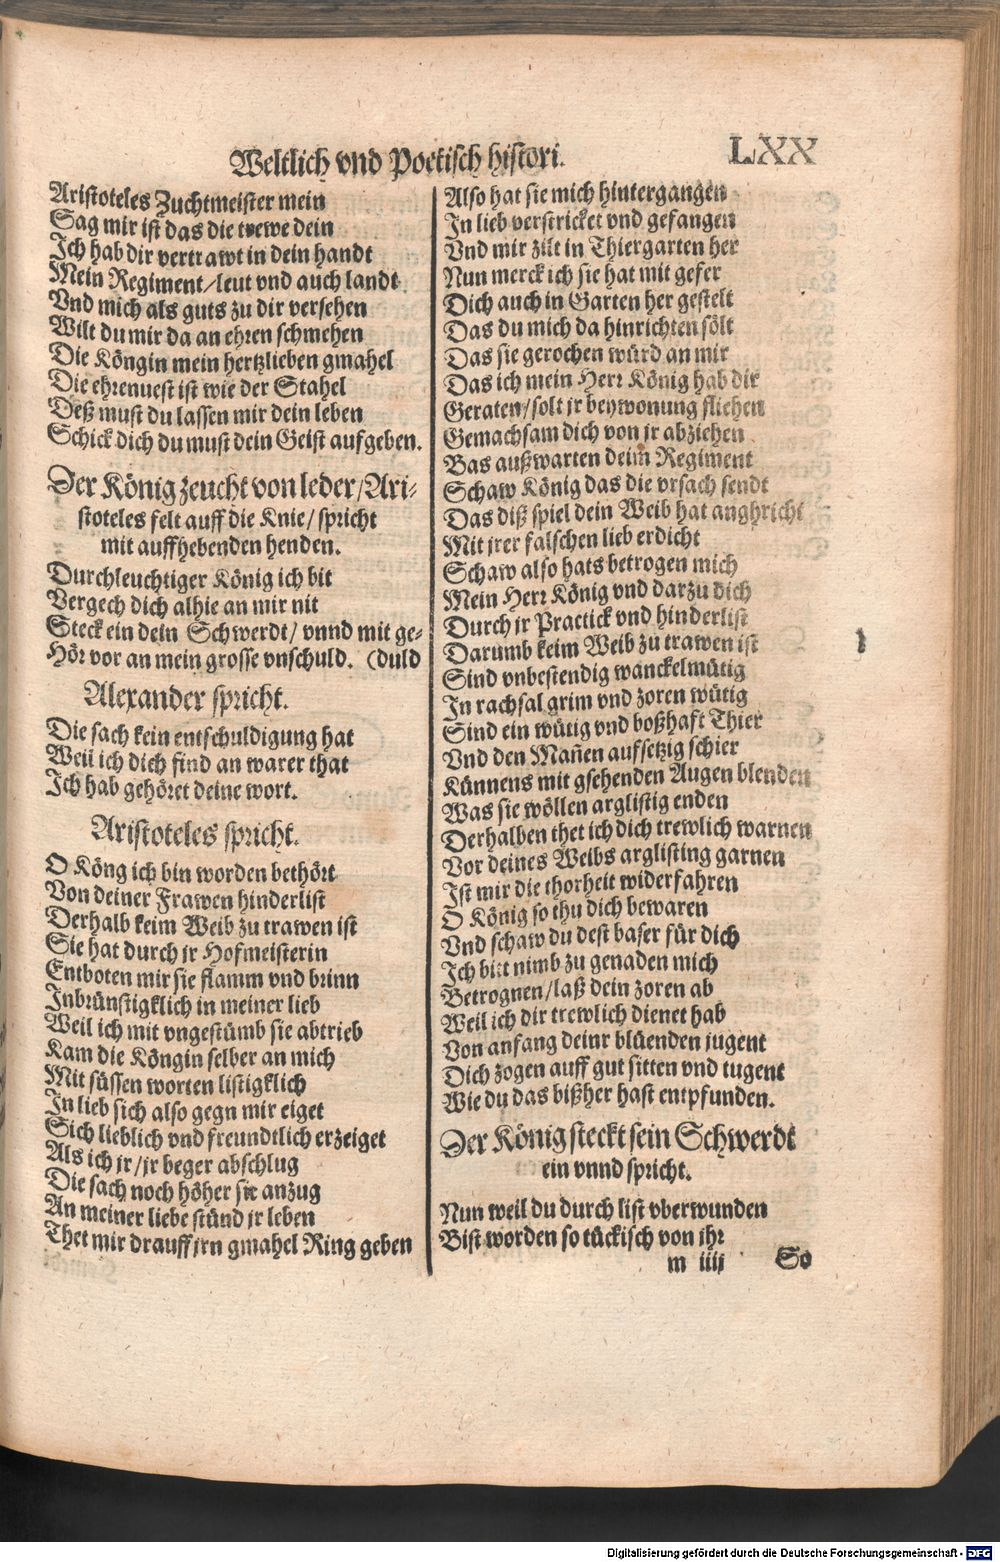 Weltlich vnd Poetisch histori.
LXX
Aristoteles Zuchtmeister mein
Sag mir ist das die trewe dein
Ich hab dir vertrawt in dein handt
Mein Regiment/leut vnd auch landt
Vnd mich als guts zu dir versehen
Wilt du mir da an ehren schmehen
Die Köngin mein hertzlieben gmahel
Die ehrenuest ist wie der Stahel
Deß must du lassen mir dein leben
Schick dich du must dein Geist aufgeben.
Der König zeucht von leder/Ari-
stoteles felt auff die Knie/spricht
mit auffhebenden henden.
Durchleuchtiger König ich bit
Vergech dich alhie an mir nit
Steck ein dein Schwerdt/ vnnd mit ge-
Hör vor an mein grosse vnschuld. (duld
Alexander spricht.
Die sach kein entschuldigung hat
Weil ich dich find an warer that
Ich hab gehöret deine wort.
Aristoteles spricht.
O Köng ich bin worden bethört
Von deiner Frawen hinderlist
Derhalb keim Weib zu trawen ist
Sie hat durch jr Hofmeisterin
Entboten mir sie flamm vnd brinn
Inbrünstigklich in meiner lieb
Weil ich mit vngestümb sie abtrieb
Kam die Köngin selber an mich
Mit süssen worten listigklich
In lieb sich also gegn mir eiget
Sich lieblich vnd freundtlich erzeiget
Als ich jr/jr beger abschlug
Die sach noch höher sie anzug
An meiner liebe stünd jr leben
Thet mir drauff jrn gmahel Ring geben
Also hat sie mich hintergangen
In lieb verstricket vnd gefangen
Vnd mir zilt in Thiergarten her
Nun merck ich sie hat mit gefer
Dich auch in Garten her gestelt
Das du mich da hinrichten sölt
Das sie gerochen würd an mir
Das ich mein Herr König hab dir
Geraten/solt jr beywonung fliehen
Gemachsam dich von jr abziehen
Bas außwarten deim Regiment
Schaw König das die vrsach sendt
Das diß spiel dein Weib hat anghricht
Mit jrer falschen lieb erdicht
Schaw also hats betrogen mich
Mein Herr König vnd darzu dich
Durch jr Practick vnd hinderlist
Darumb keim Weib zu trawen ist
Sind vnbestendig wanckelmütig
In rachsal grim vnd zoren wütig
Sind ein wütig vnd boßhaft Thier
Vnd den Mañen aufsetzig schier
Künnens mit gsehenden Augen blenden
Was sie wöllen arglistig enden
Derhalben thet ich dich trewlich warnen
Vor deines Weibs arglisting garnen
Ist mir die thorheit widerfahren
O König so thu dich bewaren
Vnd schaw du dest baser für dich
Ich bitt nimb zu genaden mich
Betrognen/laß dein zoren ab
Weil ich dir trewlich dienet hab
Von anfang deinr blüenden jugent
Dich zogen auff gut sitten vnd tugent
Wie du das bißher hast entpfunden.
Der König steckt sein Schwerdt
ein vnnd spricht.
Nun weil du durch list vberwunden
Bist worden so tückisch von ihr
m iiij
So
Digitalisierung gefördert durch die Deutsche Forschungsgemeinschaft - DFG